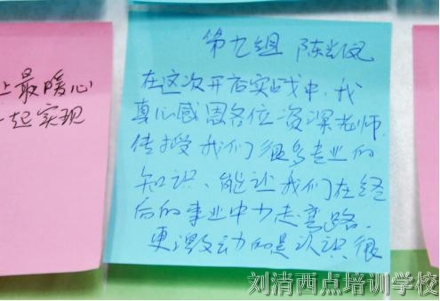 上最暖心
一起实现
第九组 陈
在这次开店实战中,我
真心感恩各位资深老师
传授我们很多专业的
知识、能让我们在经
后的事业中少走弯路.
更激动的是认识很
刘清西点培训学校